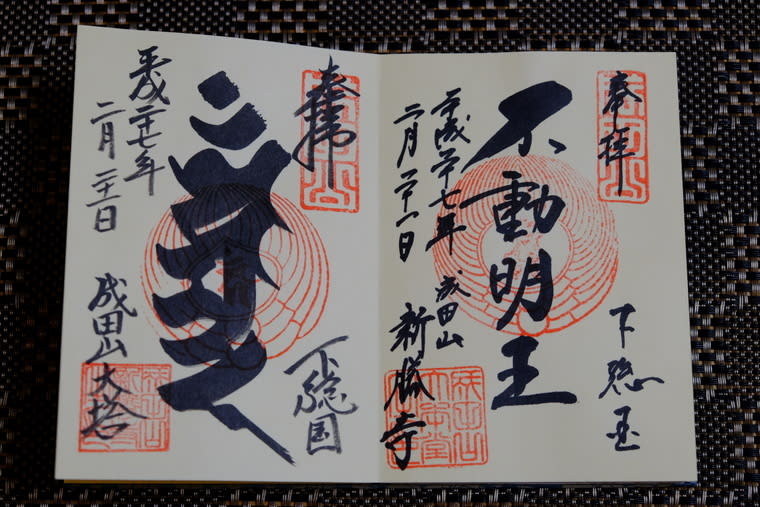 奉拝
下総国
不動明王
平成二十七年
二月二十一日
成田山
新勝寺
奉拝
下総国
平成二十七年
二月二十一日
成田山大塔